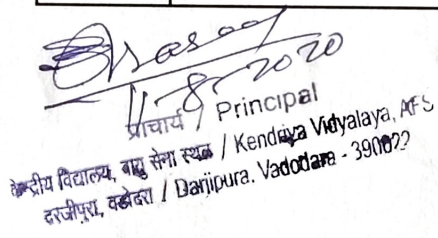 11-8-2020
प्राचार्य / Principal
केन्द्रीय विद्यालय, वायु सेना स्थल / Kendriya Vidyalaya, AFS
दरजीपुरा, वडोदरा / Darjipura. Vadodara - 390022